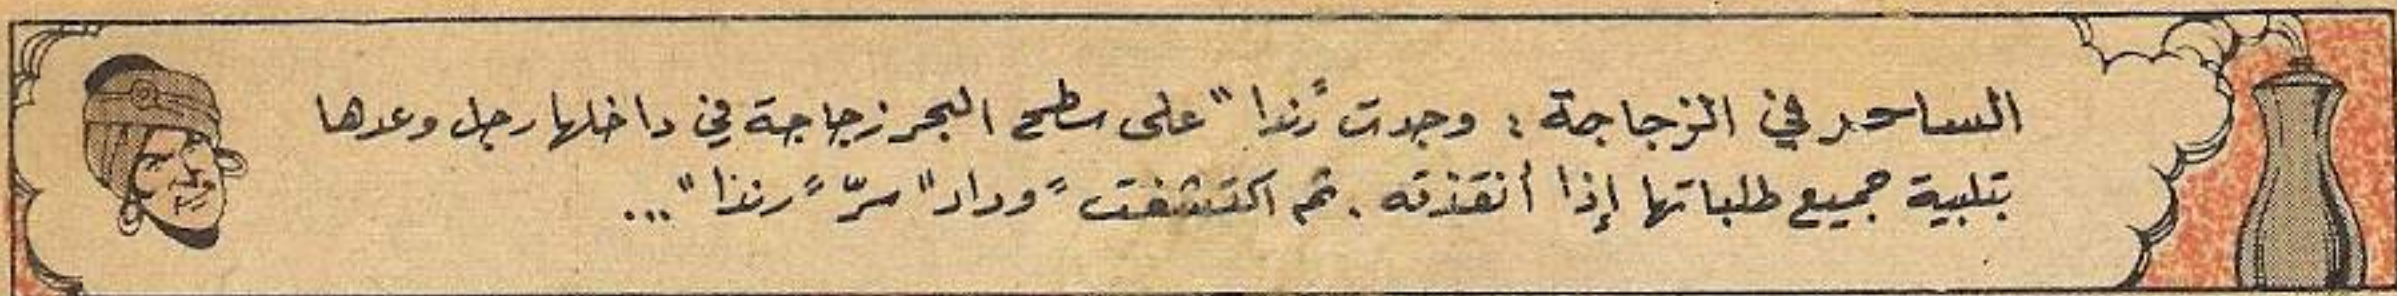 الساحر في الزجاجة : وجدت "رندا" على سطح البحر زجاجة في داخلها رجل وعدها
بتلبية جميع طلباتها إذا أنقذته . ثم اكتشفت "وداد" سرّ "رندا" ...